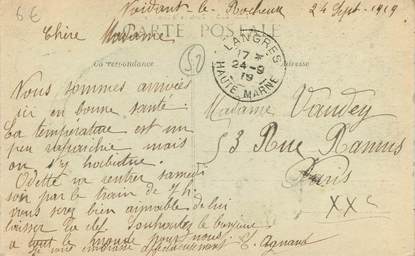 6€
Voidant-le-Rocheux 24 Sept. 1919
Chère Madame
CARTE POSTALE
LANGRES
17 *
24-9
19
HAUTE-MARNE
52
Correspondance
Adresse
Nous sommes arrivées
ici en bonne santé
La température est un
peu rafraichie mais
on s'y habitue.
Odette va rentrer samedi
soir par le train de 7h.
vous serez bien aimable de lui
laisser la clef. Souhaitez le bonjour
à tout le monde pour nous.
Je vous embrasse affectueusement
Madame Vaudey
53 Rue Ramus
Paris
XXe